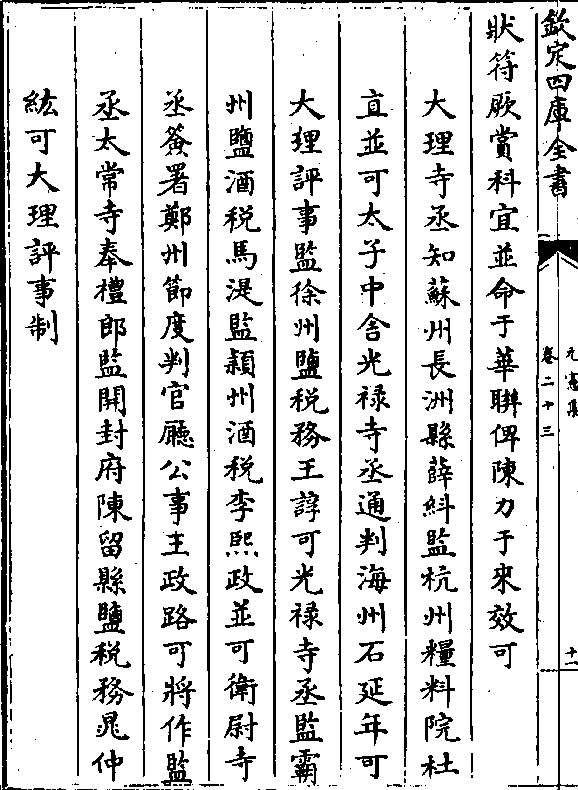 欽定四庫全書
元憲集
卷二十三
十一
狀符厥賞科宜並命于華聨俾陳力于來效可
大理寺丞知蘇州長洲縣薛紏監杭州糧料院杜
直並可太子中舍光禄寺丞通判海州石延年可
大理評事監徐州鹽税務王諄可光禄寺丞監霸
州鹽酒税馬湜監潁州酒税李熙政並可衛尉寺
丞簽署鄭州節度判官廳公事王政路可將作監
丞太常寺奉禮郎監開封府陳留縣鹽税務晁仲
紘可大理評事制